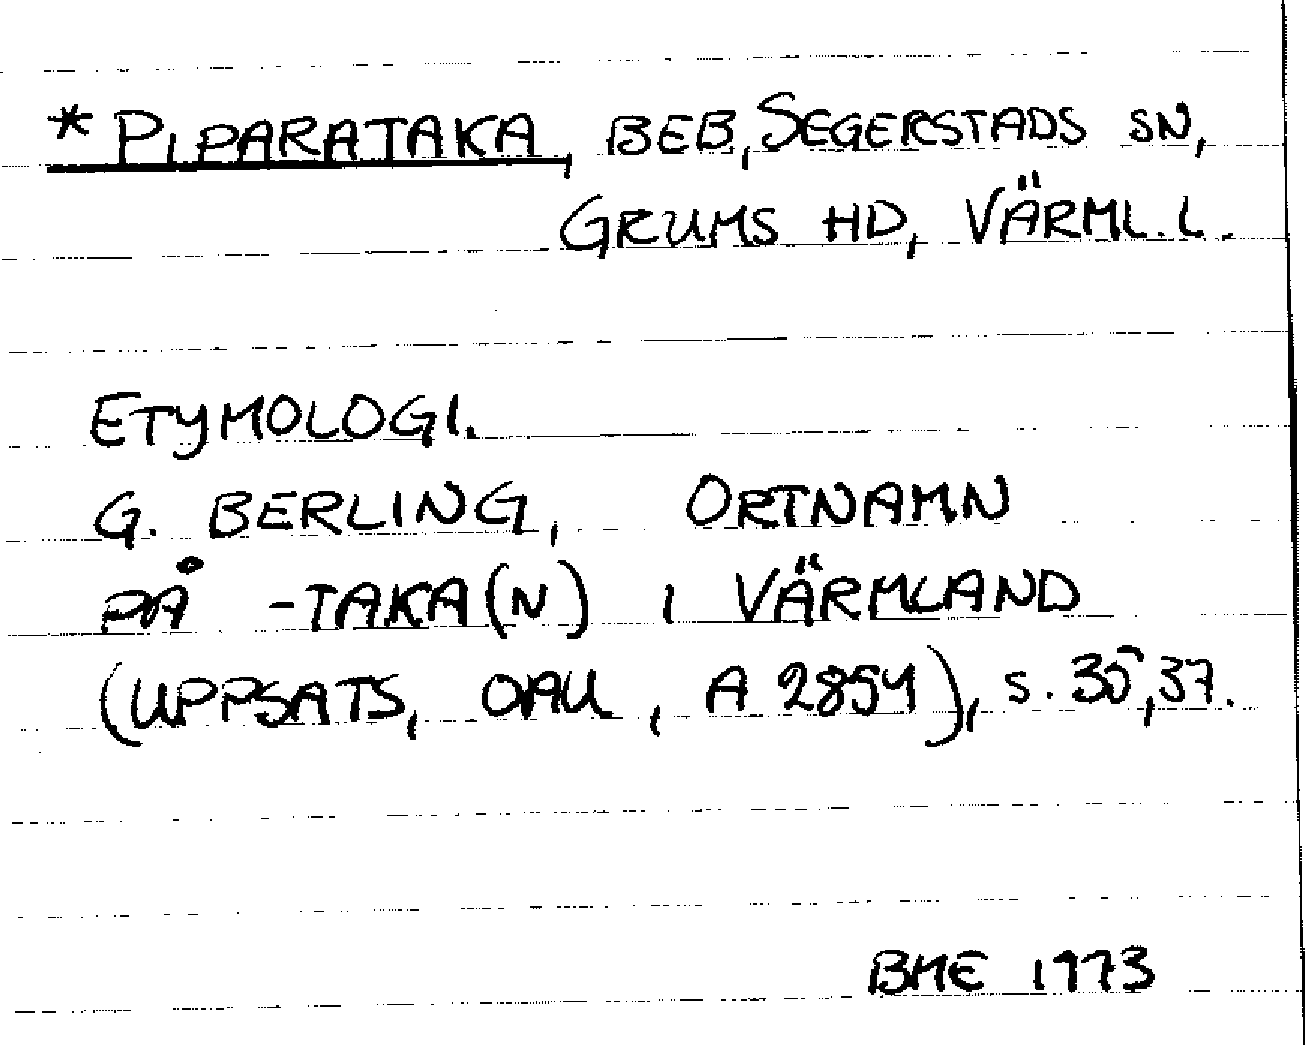 * PIPARATAKA, BEB, SEGERSTADS SN,
GRUMS HD, VÄRML. L.
ETYMOLOGI.
G. BERLING, ORTNAMN
PÅ -TAKA(N) I VÄRMLAND
(UPPSATS, OAU, A 2854), s. 35, 37.
BME 1973